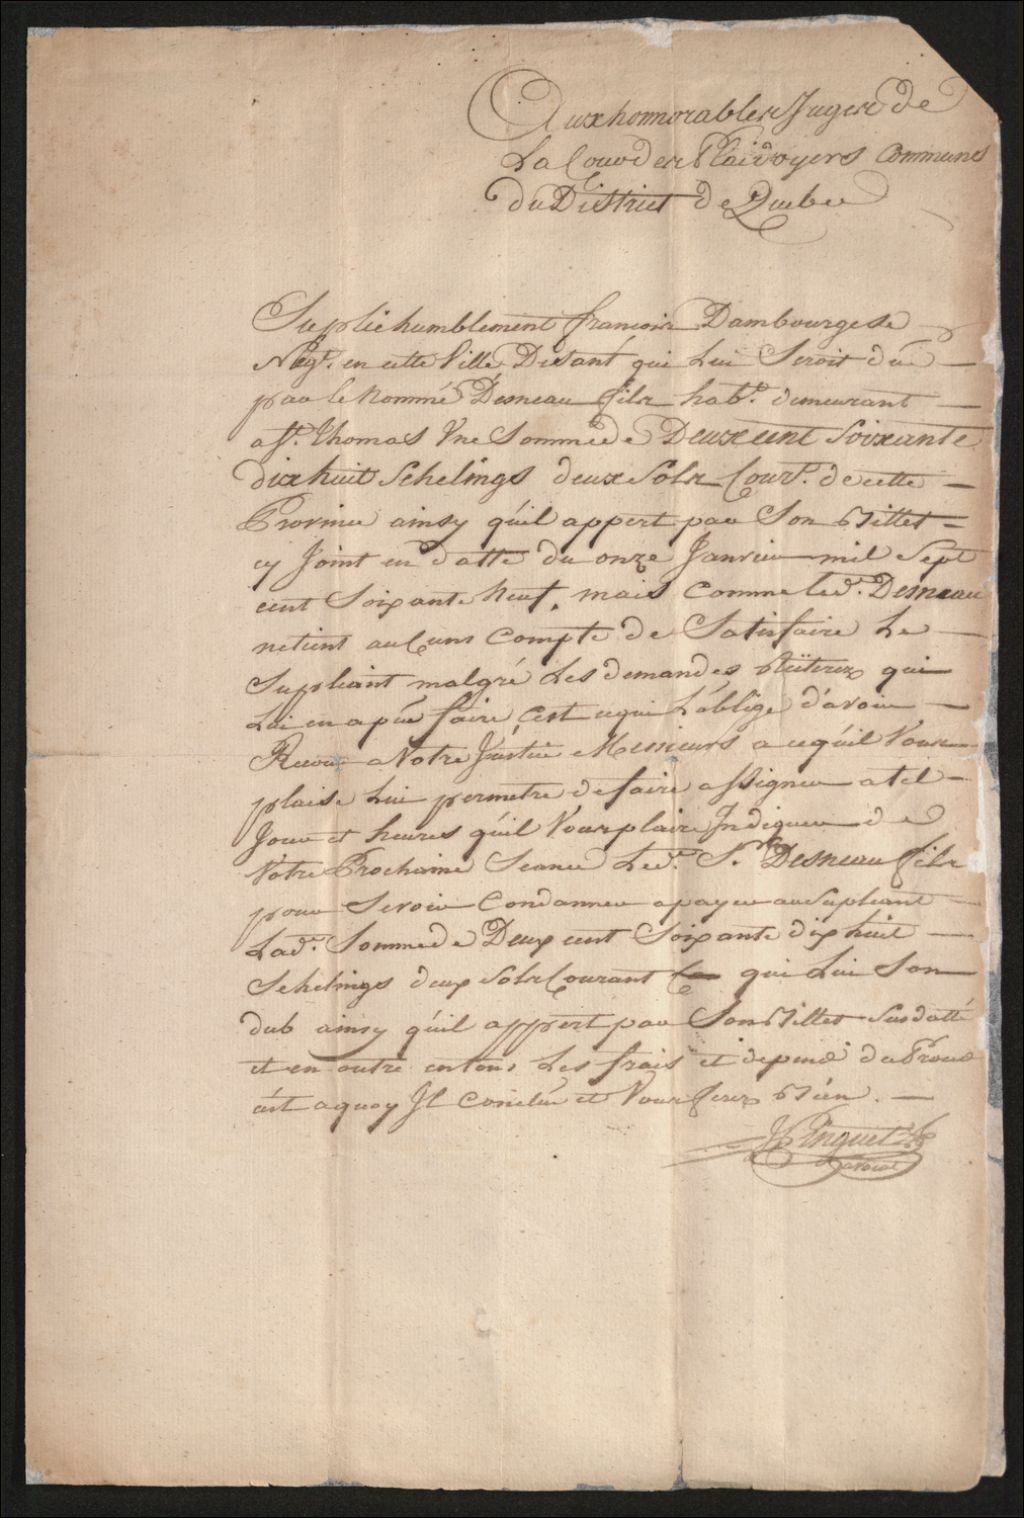 Aux honnorables Juges de
La Cour des Plaidoyers Communes
du District de Quebec
Suplie humblement francois Dambourgese
Negt. en cette Ville Disant qui Lui Seroit dû
par le Nommé Desneau fils habt. demeurant
a St. Thomas Une Somme de Deux cent Soixante
dix huit Schelings deux Sols Court. de cette
Province ainsy qúil appert par Son Billet
cy Joint en datte du onze Janvier mil Sept
cent Soixante Neuf, mais comme Led. Desneau
ne tient aucuns Compte de Satisfaire Le
Supliant malgré Les demandes Réiterez qui
Lui en a pûe faire, c'est ce qui L'áblige d'avoir
Recour a Notre Justice Messieurs a ce qúil Vous
plaise Lui permetre de faire assigner a tel
Jour et heures qúil Vous plaire Indiquer de
Votre Prochaine Seance Led. Sr. Desneau fils
pour Se voir Condanner a payer au Supliant
Lad. Somme de Deux cent Soixante dix huit
Schelings deux Sols Courant qui Lui Son
dub ainsy qúil appert par Son Billet Susdatté
et en outre en tous Les frais et depend du Proces
c'ést a quoy Il Conclûe et Vous ferez Bién.
JN Pinguet
avocat